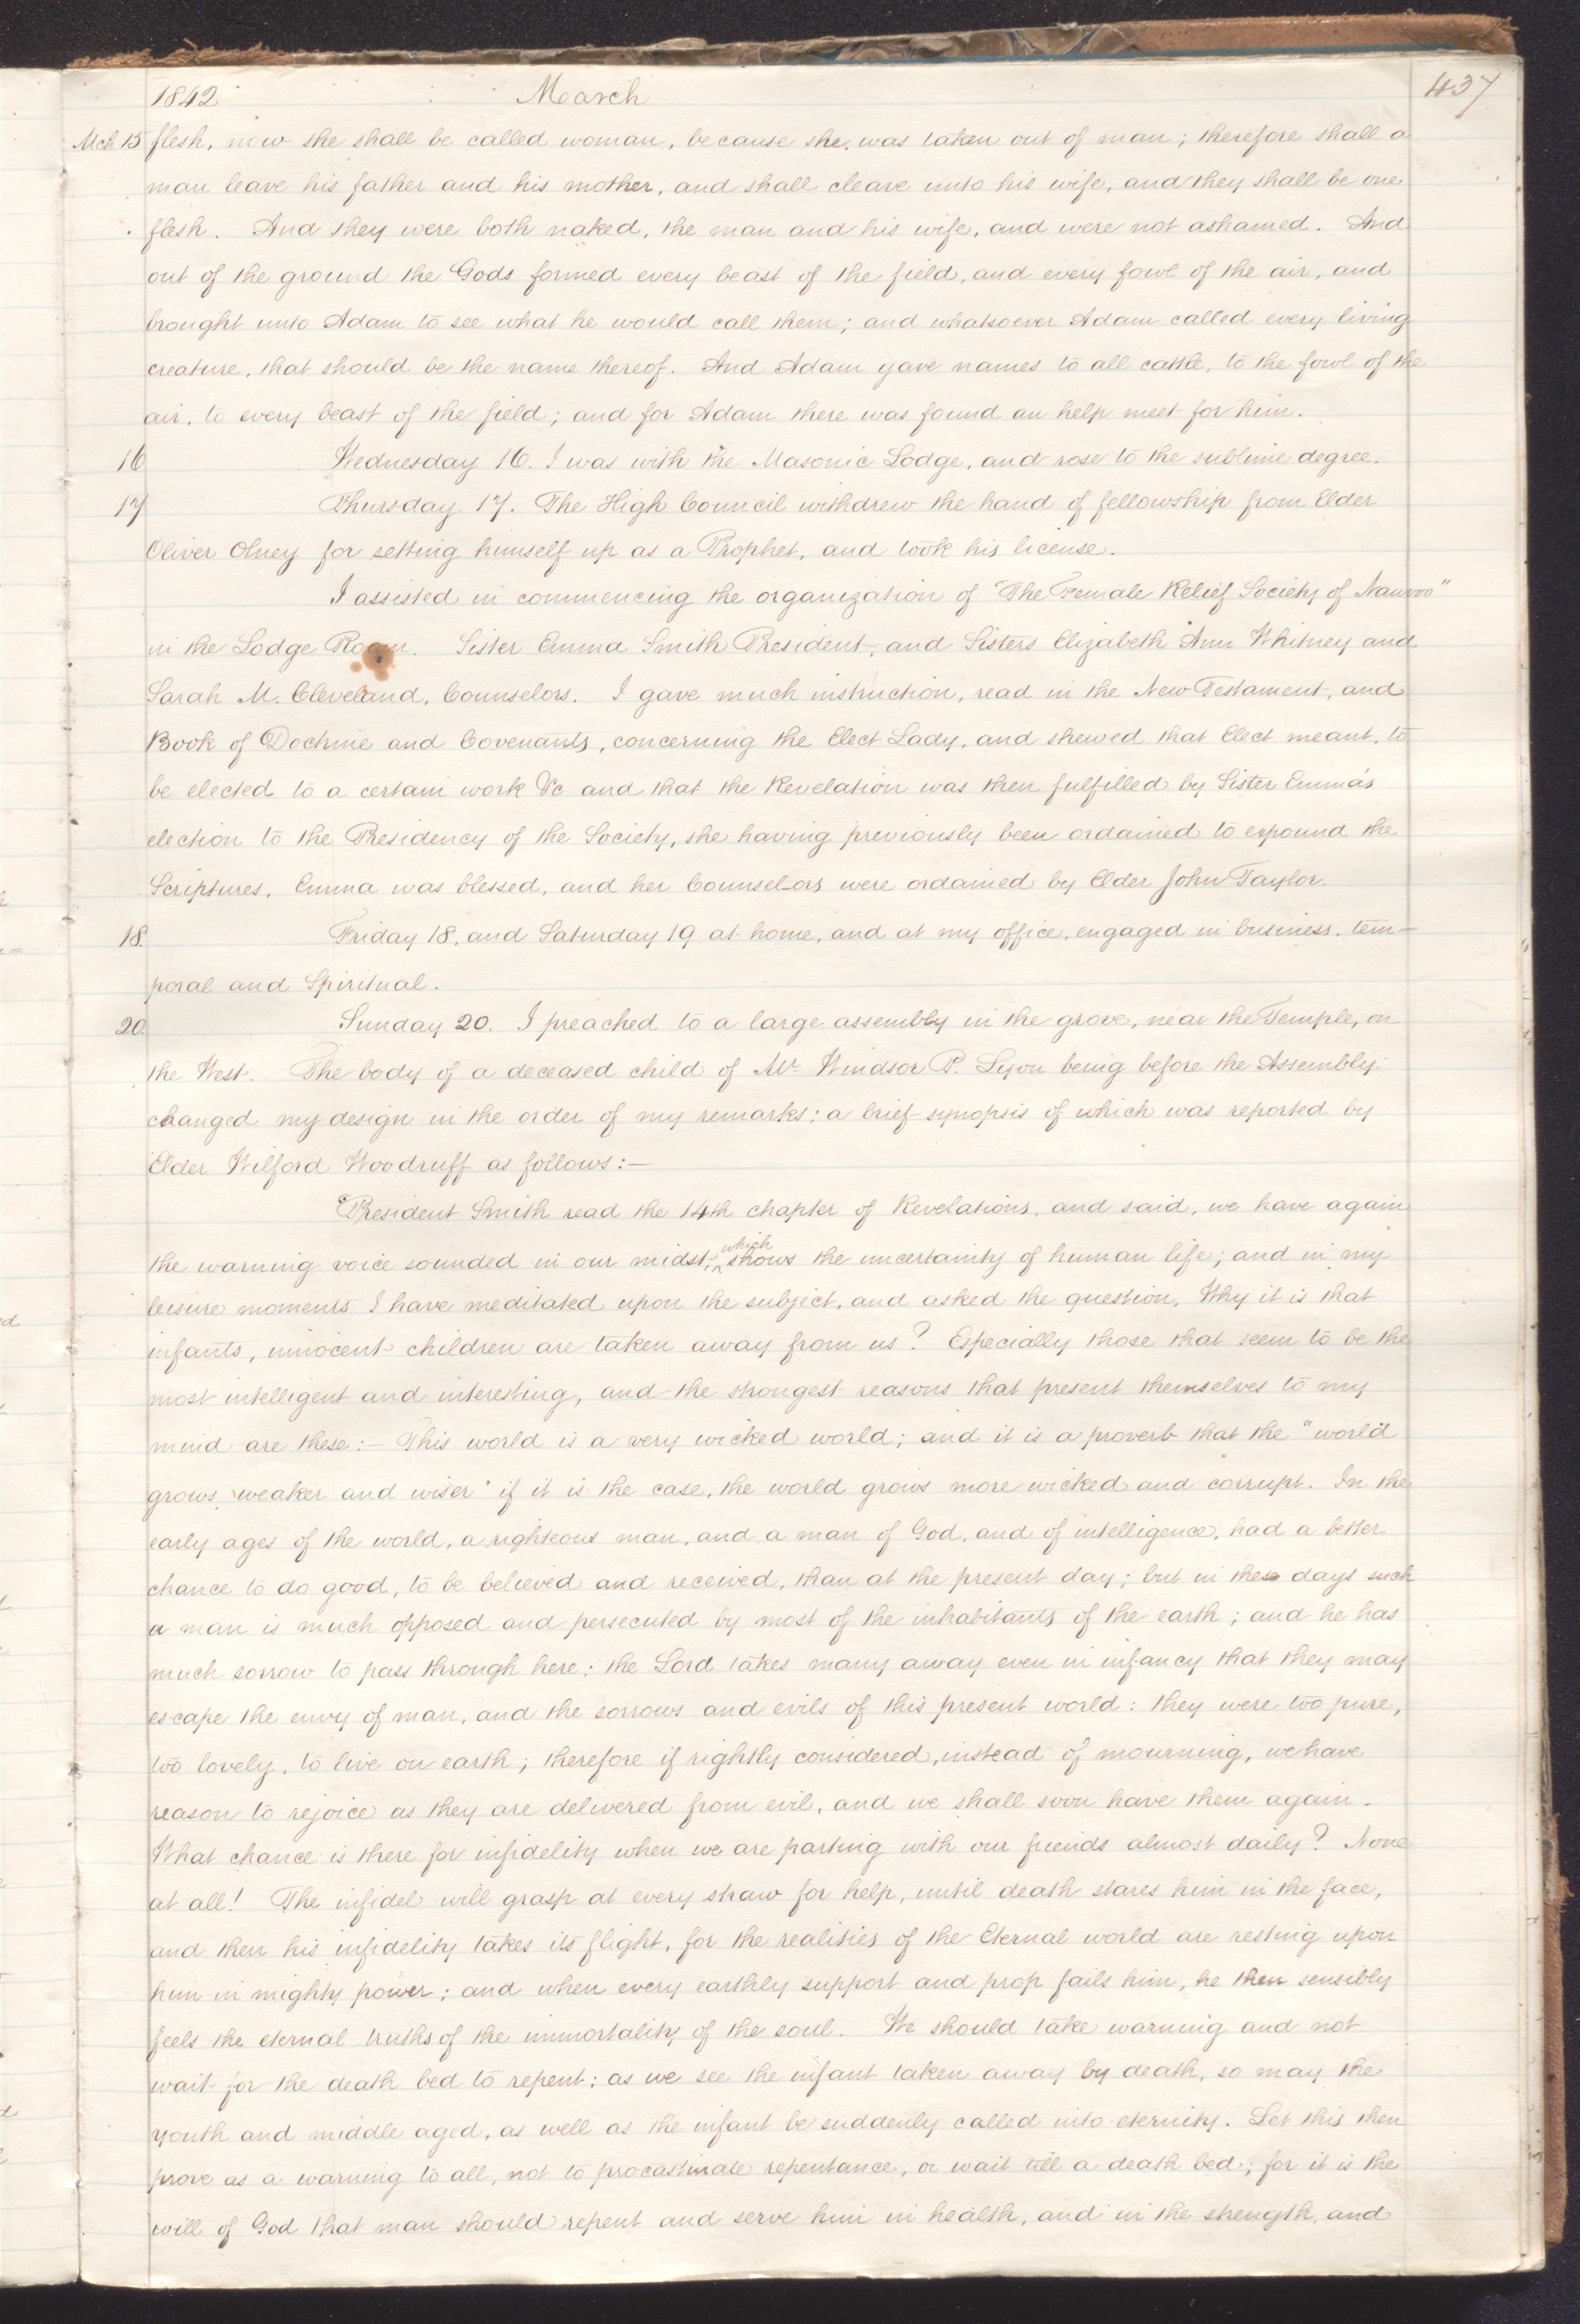 1842 March 437
Mch 15 flesh, now she shall be called woman, because she was taken out of man; therefore shall a
man leave his father and his mother, and shall cleave unto his wife, and they shall be one
flesh. And they were both naked, the man and his wife, and were not ashamed. And
out of the ground the Gods formed every beast of the field, and every fowl of the air, and
brought unto Adam to see what he would call them; and whatsoever Adam called every living
creature, that should be the name thereof. And Adam gave names to all cattle, to the fowl of the
air, to every beast of the field; and for Adam there was found an help meet for him.
16 Wednesday 16. I was with the Masonic Lodge, and rose to the sublime degree.
17 Thursday 17. The High Council withdrew the hand of fellowship from Elder
Oliver Olney for setting himself up as a Prophet, and took his license.
I assisted in commencing the organization of "The Female Relief Society of Nauvoo"
in the Lodge Room. Sister Emma Smith President, and Sisters Elizabeth Ann Whitney and
Sarah M. Cleveland, Counselors. I gave much instruction, read in the New Testament, and
Book of Doctrine and Covenants, concerning the Elect Lady, and shewed that Elect meant, to
be elected to a certain work &c and that the Revelation was then fulfilled by Sister Emma's
election to the Presidency of the Society, she having previously been ordained to expound the
Scriptures. Emma was blessed, and her Counselors were ordained by Elder John Taylor.
18. Friday 18, and Saturday 19 at home, and at my office, engaged in business, tem-
poral and Spiritual.
20. Sunday 20. I preached to a large assembly in the grove, near the Temple, on
the West. The body of a deceased child of Mr Windsor P. Lyon being before the Assembly
changed my design in the order of my remarks; a brief synopsis of which was reported by
Elder Wilford Woodruff as follows:—
"President Smith read the 14th chapter of Revelations, and said, we have again
the warning voice sounded in our midst, which shows the uncertainity of human life; and in my
leisure moments I have meditated upon the subject, and asked the question, Why it is that
infants, innocent children are taken away from us? Especially those that seem to be the
most intelligent and interesting, and the strongest reasons that present themselves to my
mind are these:— This world is a very wicked world; and it is a proverb that the "world
grows weaker and wiser" if it is the case, the world grows more wicked and corrupt. In the
early ages of the world, a righteous man, and a man of God, and of intelligence, had a better
chance to do good, to be believed and received, than at the present day; but in these days such
a man is much opposed and persecuted by most of the inhabitants of the earth; and he has
much sorrow to pass through here: the Lord takes many away even in infancy that they may
escape the envy of man, and the sorrows and evils of this present world: they were too pure,
too lovely, to live on earth; therefore if rightly considered, instead of mourning, we have
reason to rejoice as they are delivered from evil, and we shall soon have them again.
What chance is there for infidelity when we are parting with our friends almost daily? None
at all! The infidel will grasp at every straw for help, until death stares him in the face,
and then his infidelity takes its flight, for the realities of the Eternal world are resting upon
him in mighty power; and when every earthly support and prop fails him, he then sensibly
feels the eternal truths of the immortality of the soul. We should take warning and not
wait for the death bed to repent; as we see the infant taken away by death, so may the
youth and middle aged, as well as the infant be suddenly called into eternity. Let this then
prove as a warning to all, not to procastinate repentance, or wait till a death bed; for it is the
will of God that man should repent and serve him in health, and in the strength, and